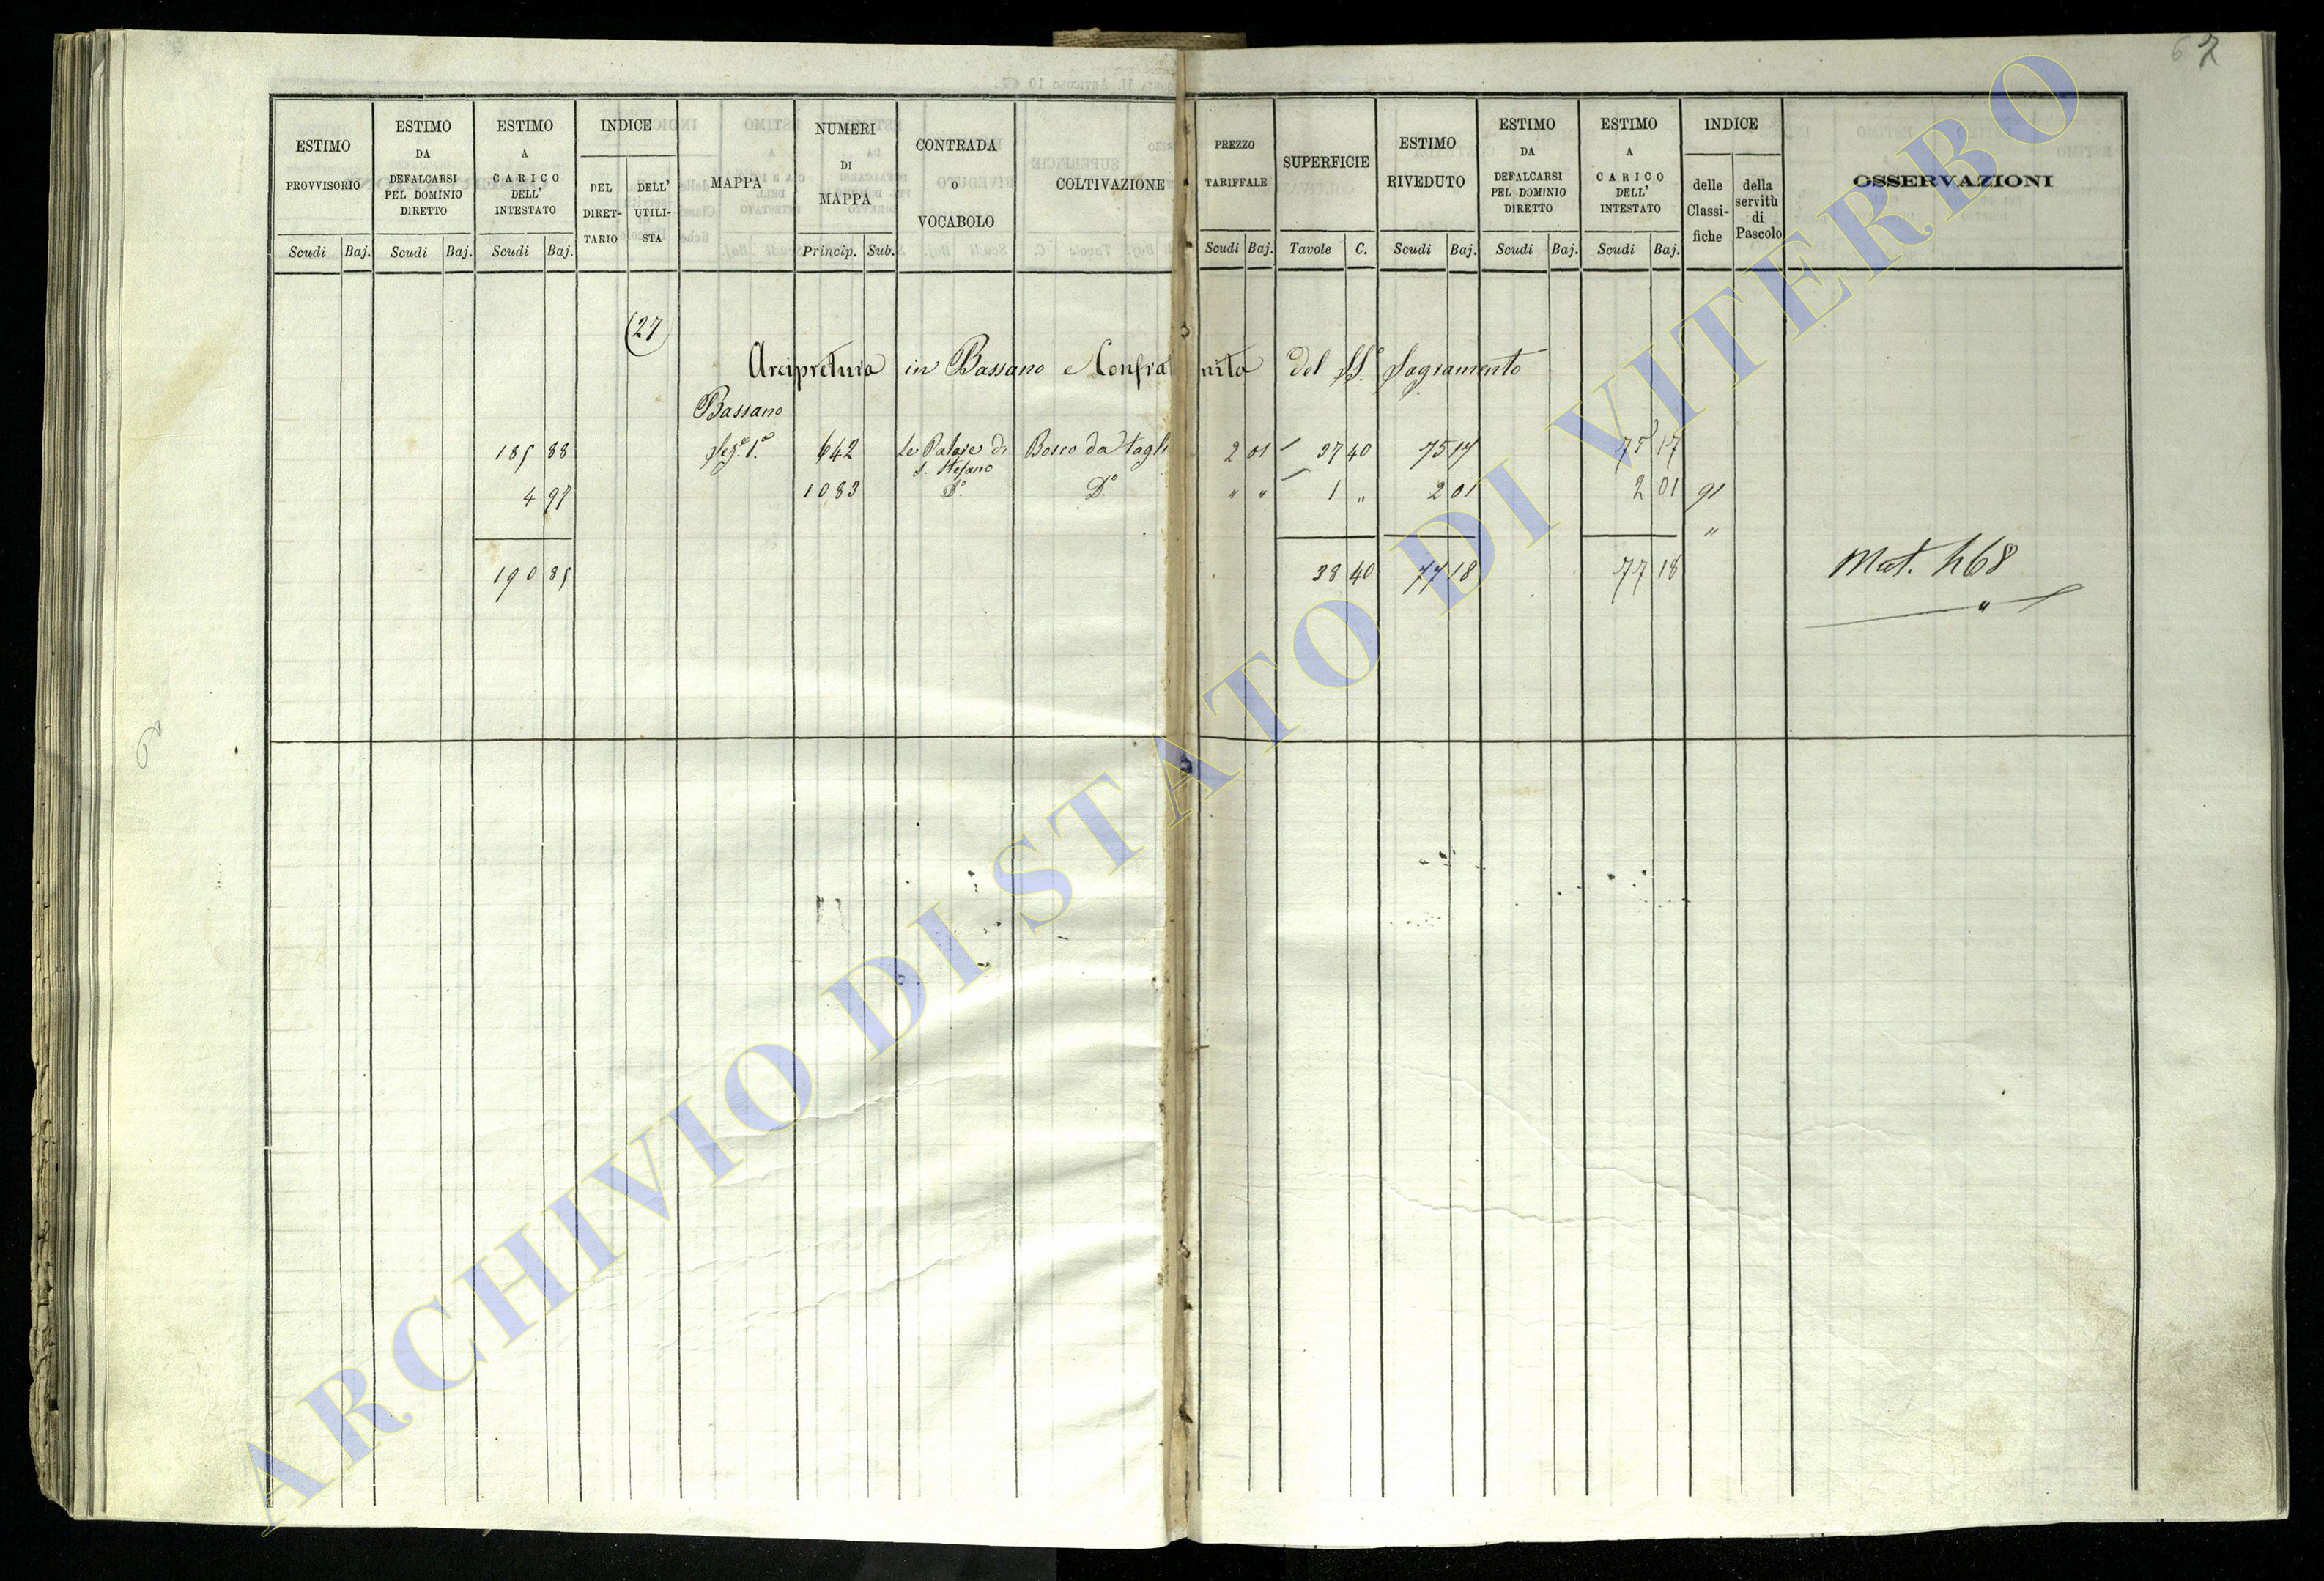 6 7
ESTIMO PROVVISORIO
ESTIMO DA DEFALCARSI PEL DOMINIO DIRETTO
ESTIMO A CARICO DELL' INTESTATO
INDICE
DEL DIRET-TARIO
DELL' UTILI-STA
MAPPA
NUMERI DI MAPPA
CONTRADA o VOCABOLO
COLTIVAZIONE
PREZZO TARIFFALE
SUPERFICIE
ESTIMO RIVEDUTO
ESTIMO DA DEFALCARSI PEL DOMINIO DIRETTO
ESTIMO A CARICO DELL' INTESTATO
INDICE
delle Classi-fiche
della servitù di Pascolo
OSSERVAZIONI
Scudi Baj. Scudi Baj. Scudi Baj. Princip. Sub. Scudi Baj. Tavole C. Scudi Baj. Scudi Baj. Scudi Baj.
27
Arcipretura in Bassano e Confraternita del SS.º Sagramento
Bassano
185 88 Seg.e 1.º 642 Le Palare di Bosco da tagli 2 01 37 40 75 17 75 17
S. Stefano
4 97 1083 D.º D.º " " 1 " 2 01 2 01 91
"
190 85 38 40 77 18 77 18 Mat. 468
"
ARCHIVIO DI STATO DI VITERBO